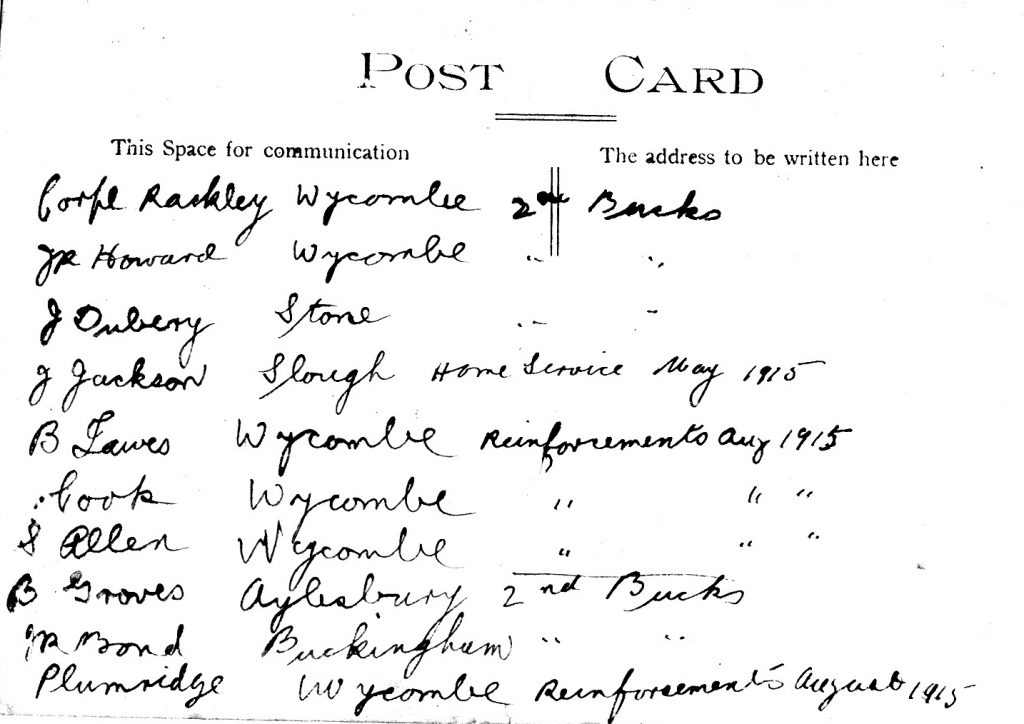 POST CARD
This Space for communication
The address to be written here
Corpl Rackley Wycombe 2nd Bucks
JR Howard Wycombe " "
J Dubery Stone " "
J Jackson Slough Home Service May 1915
B Lawes Wycombe Reinforcements Aug 1915
Cook Wycombe " " "
S Allen Wycombe " " "
B Groves Aylesbury 2nd Bucks
JR Bond Buckingham " "
Plumridge Wycombe Reinforcements August 1915